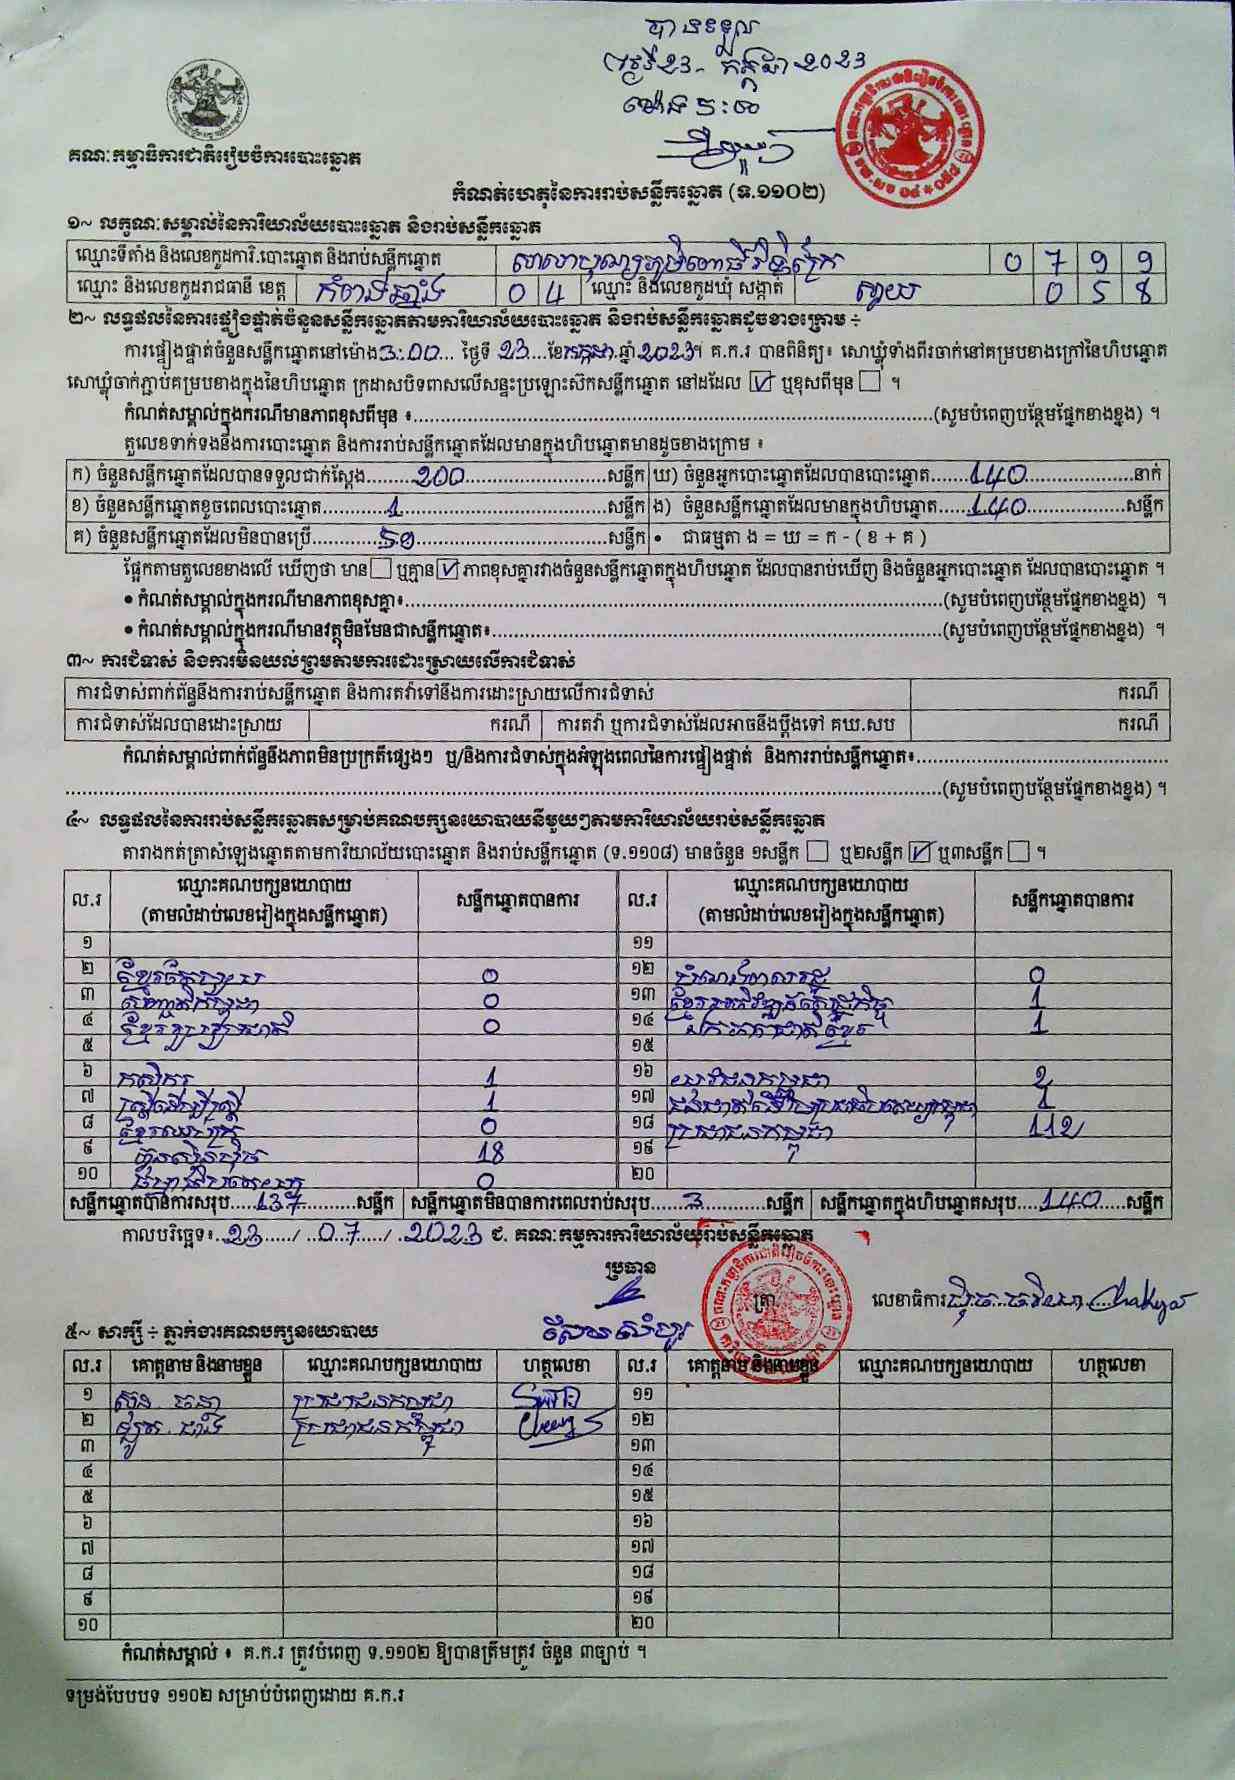 បានទទួល
ថ្ងៃទី23 - កក្កដា 2023
ម៉ោង
គណៈកម្មាធិការជាតិរៀបចំការបោះឆ្នោត
កំណត់ហេតុនៃការរាប់សន្លឹកឆ្នោត (ទ.១១០២)
១~ លក្ខណៈសម្គាល់នៃការិយាល័យបោះឆ្នោត និងរាប់សន្លឹកឆ្នោត
ឈ្មោះទីតាំង និងលេខកូដការិ.បោះឆ្នោត និងរាប់សន្លឹកឆ្នោត 0 7 9 9
ឈ្មោះ និងលេខកូដរាជធានី ខេត្ត កំពង់ឆ្នាំង 0 4 ឈ្មោះ និងលេខកូដឃុំ សង្កាត់ ស្វាយ 0 5 8
២~ លទ្ធផលនៃការផ្ទៀងផ្ទាត់ចំនួនសន្លឹកឆ្នោតតាមការិយាល័យបោះឆ្នោត និងរាប់សន្លឹកឆ្នោតដូចខាងក្រោម ÷
ការផ្ទៀងផ្ទាត់ចំនួនសន្លឹកឆ្នោតនៅម៉ោង 3:00... ថ្ងៃទី 23....ខែកក្កដា.ឆ្នាំ2023។ គ.ក.រ បានពិនិត្យ៖ សោឃ្លុំទាំងពីរចាក់នៅគម្របខាងក្រៅនៃហិបឆ្នោត
សោឃ្លុំចាក់ភ្ជាប់គម្របខាងក្នុងនៃហិបឆ្នោត ក្រដាសបិទពាសលើសន្ទះប្រឡោះស៊កសន្លឹកឆ្នោត នៅដដែល ☑ ឬខុសពីមុន ☐ ។
កំណត់សម្គាល់ក្នុងករណីមានភាពខុសពីមុន ៖....................(សូមបំពេញបន្ថែមផ្នែកខាងខ្នង) ។
តួលេខទាក់ទងនឹងការបោះឆ្នោត និងការរាប់សន្លឹកឆ្នោតដែលមានក្នុងហិបឆ្នោតមានដូចខាងក្រោម ៖
ក) ចំនួនសន្លឹកឆ្នោតដែលបានទទួលជាក់ស្តែង.........200....................សន្លឹក ឃ) ចំនួនអ្នកបោះឆ្នោតដែលបានបោះឆ្នោត.......140....................នាក់
ខ) ចំនួនសន្លឹកឆ្នោតខូចពេលបោះឆ្នោត.............1....................សន្លឹក ង) ចំនួនសន្លឹកឆ្នោតដែលមានក្នុងហិបឆ្នោត.......140....................សន្លឹក
គ) ចំនួនសន្លឹកឆ្នោតដែលមិនបានប្រើ.............59....................សន្លឹក • ជាធម្មតា ង = ឃ = ក - ( ខ + គ )
ផ្អែកតាមតួលេខខាងលើ ឃើញថា មាន ☐ ឬគ្មាន ☑ ភាពខុសគ្នារវាងចំនួនសន្លឹកឆ្នោតក្នុងហិបឆ្នោត ដែលបានរាប់ឃើញ និងចំនួនអ្នកបោះឆ្នោត ដែលបានបោះឆ្នោត ។
• កំណត់សម្គាល់ក្នុងករណីមានភាពខុសគ្នា៖....................(សូមបំពេញបន្ថែមផ្នែកខាងខ្នង) ។
• កំណត់សម្គាល់ក្នុងករណីមានវត្ថុមិនមែនជាសន្លឹកឆ្នោត៖....................(សូមបំពេញបន្ថែមផ្នែកខាងខ្នង) ។
៣~ ការជំទាស់ និងការមិនយល់ព្រមតាមការដោះស្រាយលើការជំទាស់
ការជំទាស់ពាក់ព័ន្ធនឹងការរាប់សន្លឹកឆ្នោត និងការតវ៉ាទៅនឹងការដោះស្រាយលើការជំទាស់ ករណី
ការជំទាស់ដែលបានដោះស្រាយ ករណី ការតវ៉ា ឬការជំទាស់ដែលអាចនឹងប្តឹងទៅ គឃ.សប ករណី
កំណត់សម្គាល់ពាក់ព័ន្ធនឹងភាពមិនប្រក្រតីផ្សេងៗ ឬ/និងការជំទាស់ក្នុងអំឡុងពេលនៃការផ្ទៀងផ្ទាត់ និងការរាប់សន្លឹកឆ្នោត៖....................
....................(សូមបំពេញបន្ថែមផ្នែកខាងខ្នង) ។
៤~ លទ្ធផលនៃការរាប់សន្លឹកឆ្នោតសម្រាប់គណបក្សនយោបាយនីមួយៗតាមការិយាល័យរាប់សន្លឹកឆ្នោត
តារាងកត់ត្រាសំឡេងឆ្នោតតាមការិយាល័យបោះឆ្នោត និងរាប់សន្លឹកឆ្នោត (ទ.១១០៨) មានចំនួន ១សន្លឹក ☐ ឬ២សន្លឹក ☑ ឬ៣សន្លឹក ☐ ។
ល.រ ឈ្មោះគណបក្សនយោបាយ (តាមលំដាប់លេខរៀងក្នុងសន្លឹកឆ្នោត) សន្លឹកឆ្នោតបានការ ល.រ ឈ្មោះគណបក្សនយោបាយ (តាមលំដាប់លេខរៀងក្នុងសន្លឹកឆ្នោត) សន្លឹកឆ្នោតបានការ
១ ១១
២ ខ្មែរតែមួយ 0 ១២ 0
៣ សញ្ជាតិកម្ពុជា 0 ១៣ ខ្មែរអភិវឌ្ឍន៍សេដ្ឋកិច្ច 1
៤ ខ្មែររួបរួមជាតិ 0 ១៤ ឯកភាពជាតិខ្មែរ 1
៥ ១៥
៦ កសិករ 1 ១៦ យុវជនកម្ពុជា 2
៧ ស្ត្រីដើម្បីស្ត្រី 1 ១៧ 1
៨ ខ្មែរឈប់ក្រ 0 ១៨ ប្រជាជនកម្ពុជា 112
៩ ហ៊្វុនស៊ិនប៉ិច 18 ១៩
១០ ធម្មាធិបតេយ្យ 0 ២០
សន្លឹកឆ្នោតបានការសរុប.....137..........សន្លឹក សន្លឹកឆ្នោតមិនបានការពេលរាប់សរុប.......3............សន្លឹក សន្លឹកឆ្នោតក្នុងហិបឆ្នោតសរុប....140.....សន្លឹក
កាលបរិច្ឆេទ៖..23...../...07...../...2023 ជ. គណៈកម្មការការិយាល័យរាប់សន្លឹកឆ្នោត
ប្រធាន ត្រា លេខាធិការ
៥~ សាក្សី ÷ ភ្នាក់ងារគណបក្សនយោបាយ
ល.រ គោត្តនាម និងនាមខ្លួន ឈ្មោះគណបក្សនយោបាយ ហត្ថលេខា ល.រ គោត្តនាម និងនាមខ្លួន ឈ្មោះគណបក្សនយោបាយ ហត្ថលេខា
១ ប្រជាជនកម្ពុជា ១១
២ ប្រជាជនកម្ពុជា ១២
៣ ១៣
៤ ១៤
៥ ១៥
៦ ១៦
៧ ១៧
៨ ១៨
៩ ១៩
១០ ២០
កំណត់សម្គាល់ ៖ គ.ក.រ ត្រូវបំពេញ ទ.១១០២ ឱ្យបានត្រឹមត្រូវ ចំនួន ៣ច្បាប់ ។
ទម្រង់បែបបទ ១១០២ សម្រាប់បំពេញដោយ គ.ក.រ